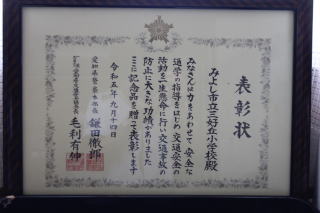 表彰状
みよし市立三好丘小学校殿
みなさんは力をあわせて安全な
通学の指導をはじめ交通安全の
活動を一生懸命に行い交通事故の
防止に大きな功績がありました
ここに記念品を贈って表彰します
令和五年九月十四日
愛知県警察本部長
鎌田徹郎
毛利有伸